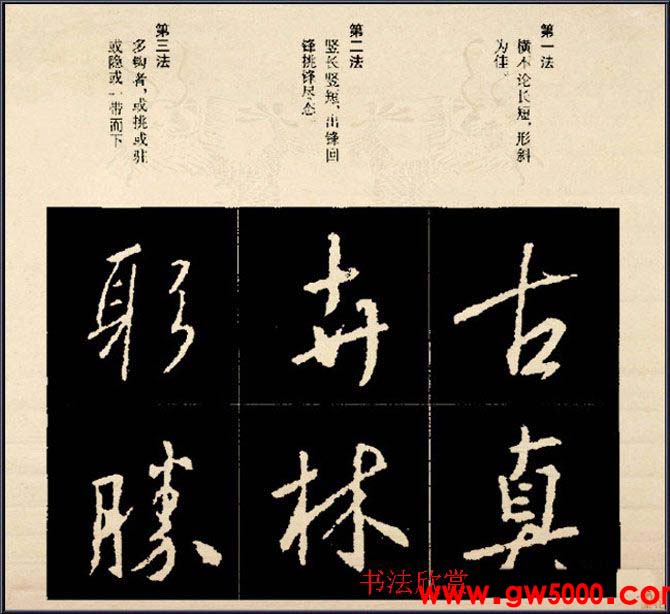 第一法
横不论长短，形斜
为佳。
第二法
竖长竖短，出锋回
锋挑锋尽态。
第三法
多钩者，或挑或驻
或隐或一带而下
古
真
卉
林
胜
书法欣赏
www.gw5000.com